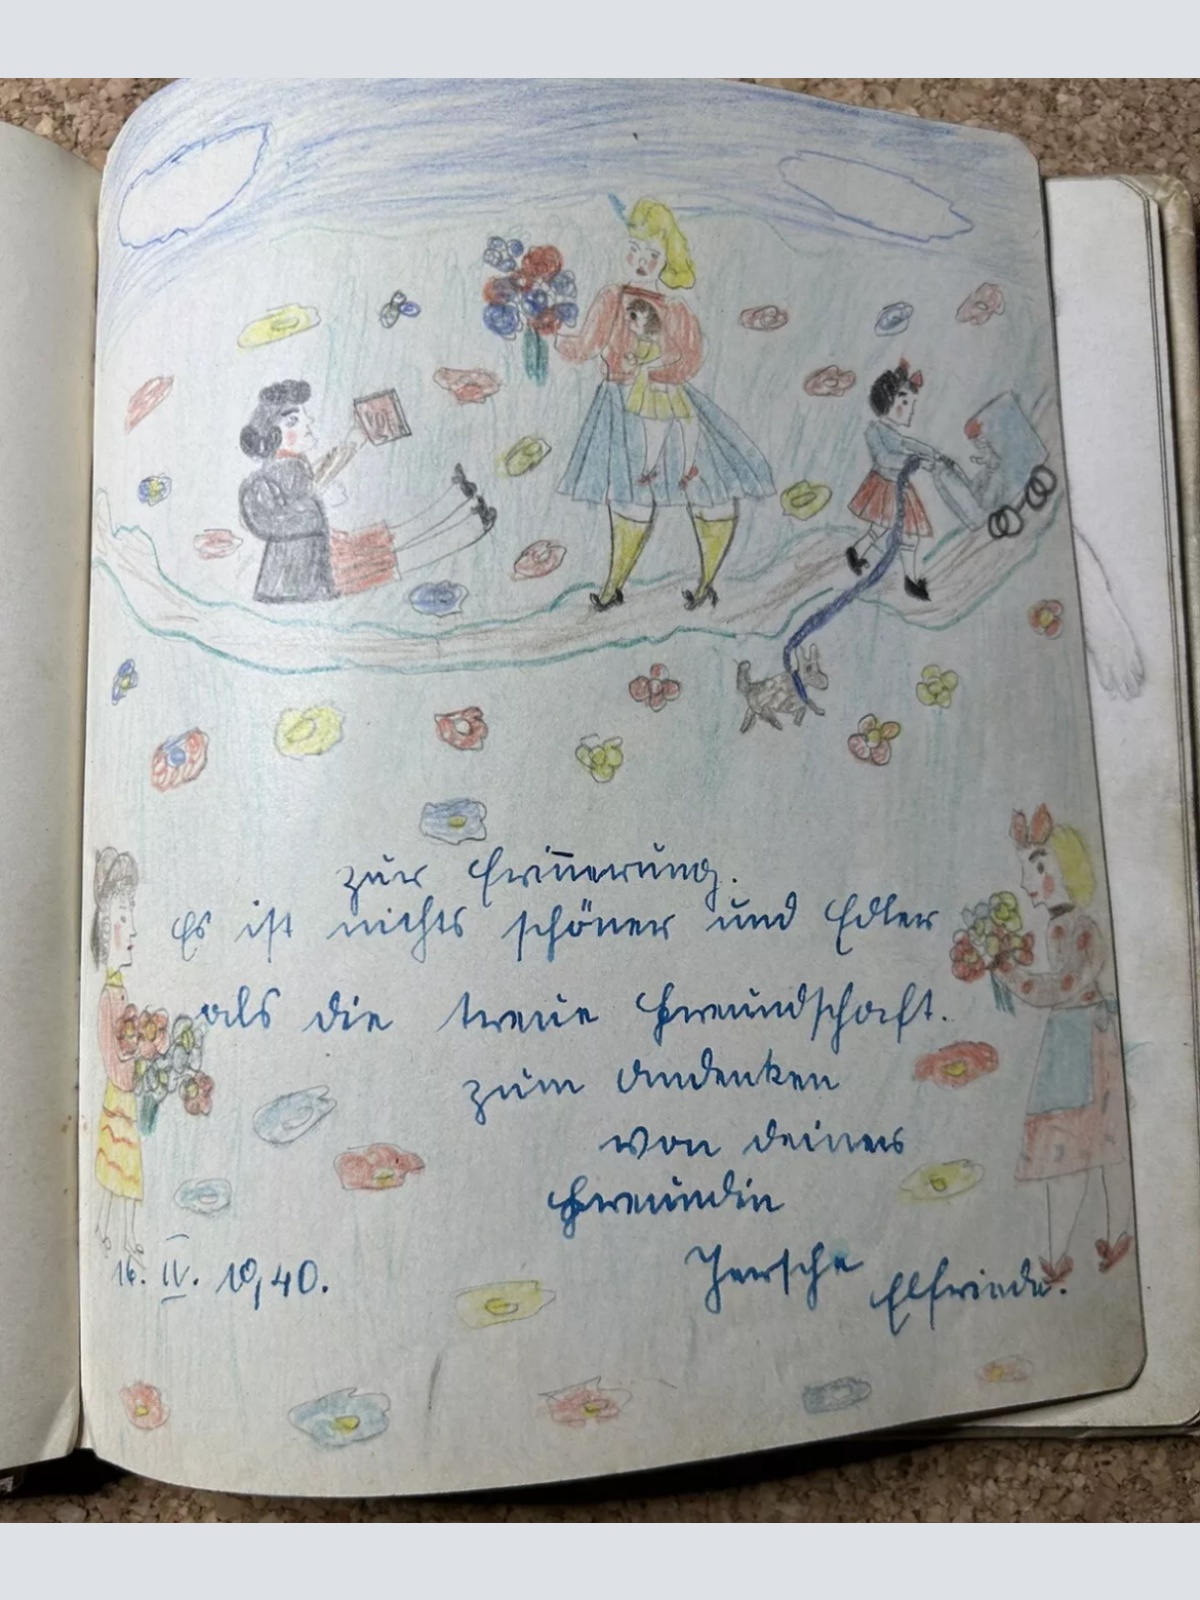 zur Erin̄erung.
Es ist nichts schöner und Edler
als die treue Freundschaft.
zum Andenken
von deiner
Freundin
Elfriede.
16. IV. 1940.